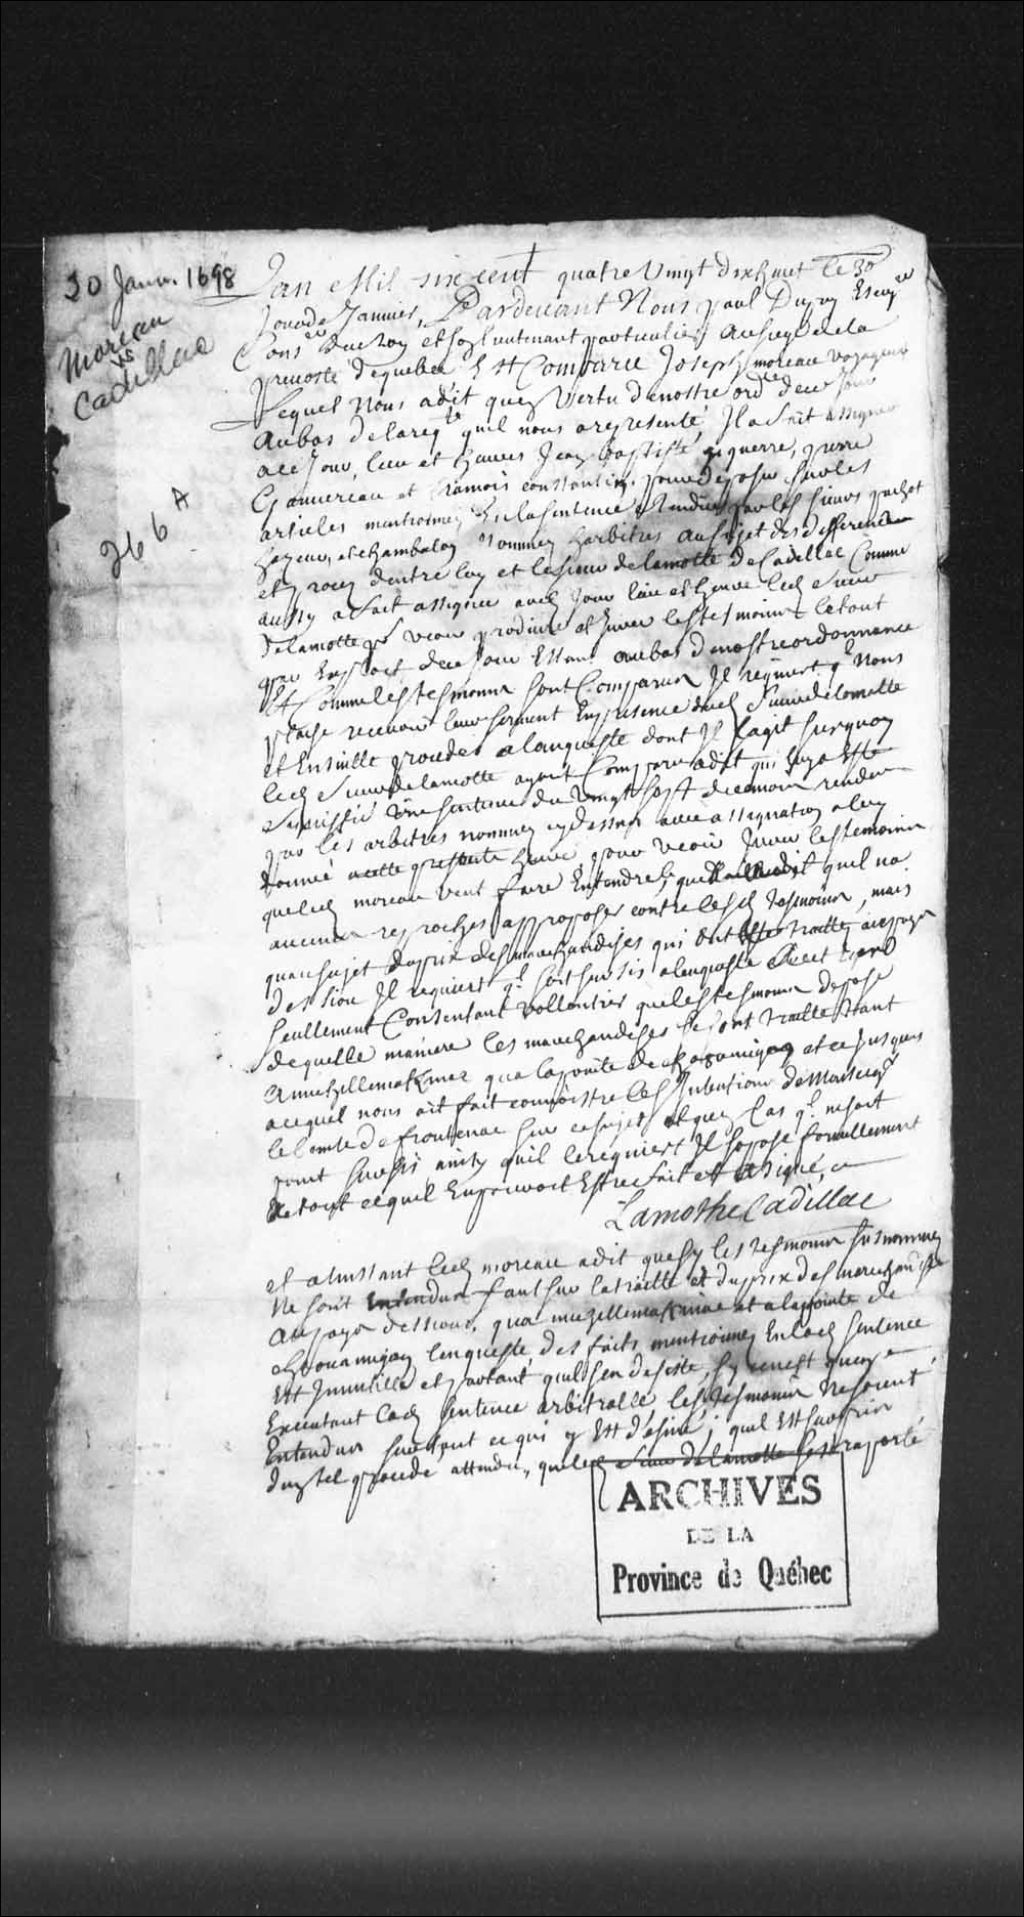 30 Janv. 1698
Moreau
vs
Cadillac
266 A
Lan Mil six cent quatre Vingt dixhuict le 30e
Jour de Januier, Pardeuant Nous paul Dupuy Escuyer
Conser du Roy et son lieutenant particulier au siege de la
preuosté de quebec Est Comparu Joseph moreau voyageur
Lequel Nous a dit quen Vertu de nostre ordce de ce Jour
au bas de la reqte quil nous a representé, Il a fait assigner
a ce Jour, lieu et heures Jean baptiste guerre, pierre
et francois constantin, pour deposer sur les
articles mentionnez En la sentence Rendue par les sieurs pachot
hazeur, et chambalon Nommez harbitres au sujet des differends
et procez dentre luy et le sieur de lamotte de Cadillac Comme
aussy a fait assigner aud Jour lieu et heure led sieur
de lamotte pr veoir produire et Jurer les tesmoins le tout
par Exploit de ce Jour Estant au bas de nostre ordonnance
Et Comme les tesmoins sont Comparus Il requiert ql Nous
plaise receuoir leur serment En presence dud sieur de lamotte
et Ensuitte proceder a lenqueste dont Il sagit surquoy
led sieur de lamotte ayant Comparu a dit qui luy a Esté
signiffié une sentence du Vingt sept decembre rendue
par les arbitres nommez cy dessus auec assignation a luy
donnée a cette presente heure pour veoir Jurer les temoins
que led moreau veut faire Entendre, quil na
aucuns reproches a proposer contre lesd Tesmoins, mais
quau sujet du prix des marchandises qui ont esté traitté au pays
des sioux Il requiert ql soit sursis a lenqueste a cet Egard
seullement Consentant vollontiers que les tesmoins depose
de quelle maniere les marchandises se sont traitté tant
a michillimakinac qua la pointe de chagouamigon et ce jusques
a ce quil nous ait fait connoistre les Intentions de Monseigr
le Comte de frontenac sur ce sujet et quen Cas ql ne soit
point sursis ainsy quil le requiert Il sopose formellement
a tout ce quil En pouroit Estre fait et a signé
Lamothe Cadillac
et a linstant led moreau a dit que sy les tesmoins susnommez
Ne sont Entendus tant sur la traitte et du prix des marchandises
au pays des sioux, qua michillimakinac et a la pointe de
chagouamigon lenqueste des faits mentionnez En lad sentence
Est Innutille et partant quil sen desiste, sy ce nest quen
Executant lad sentence arbitralle les tesmoins Ne soient
Entendus sur tout ce qui y Est désiné; quel Est
dun tel procedé attendu, que led sieur de lamotte sest raporté
ARCHIVES
DE LA
Province de Québec